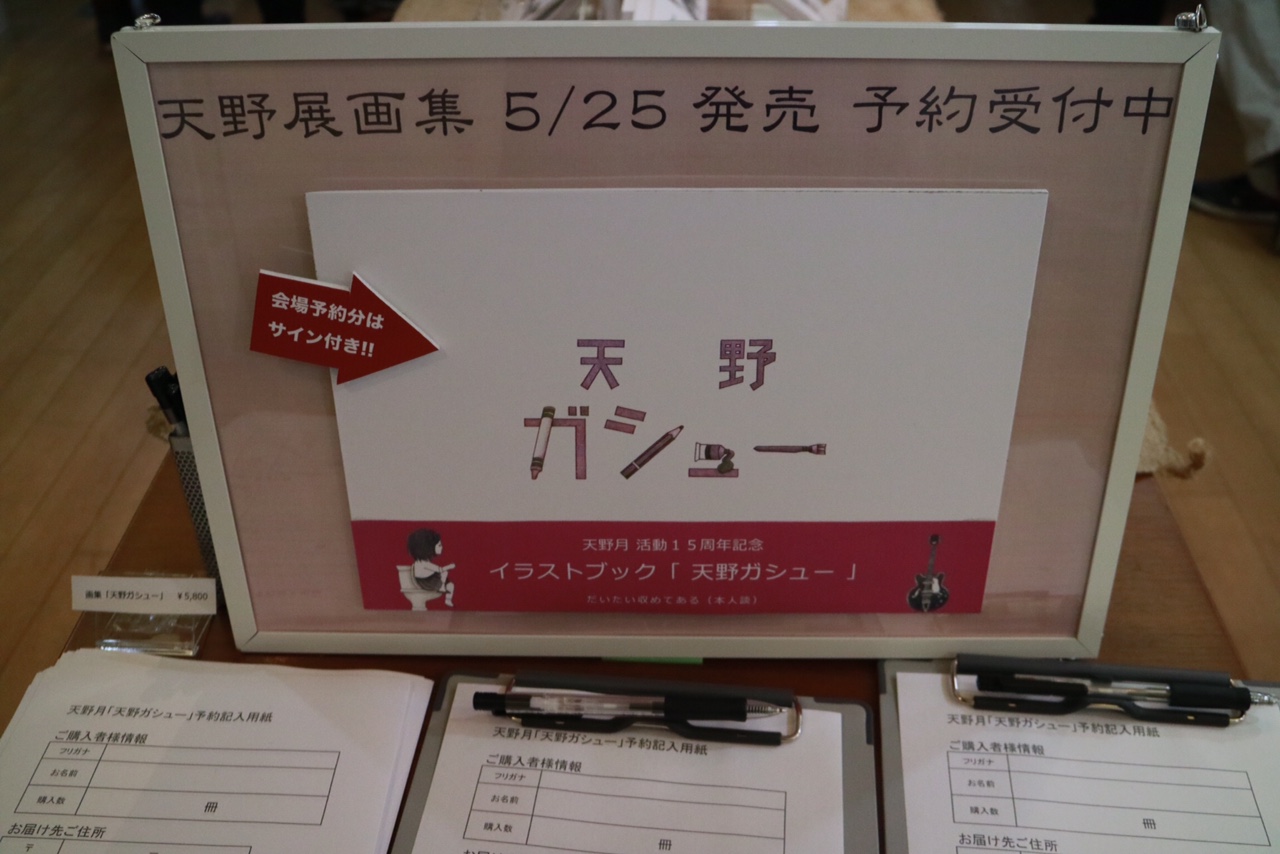 天野展画集 5/25 発売 予約受付中
会場予約分は
サイン付き!!
天野
ガシュー
天野月 活動１５周年記念
イラストブック「 天野ガシュー 」
だいたい収めてある（本人談）
画集「天野ガシュー」 ￥5,800
天野月「天野ガシュー」予約記入用紙
ご購入者様情報
フリガナ
お名前
購入数 冊
お届け先ご住所
〒
天野月「天野ガシュー」予約記入用紙
ご購入者様情報
フリガナ
お名前
購入数 冊
天野月「天野ガシュー」予約記入用紙
ご購入者様情報
フリガナ
お名前
購入数 冊
お届け先ご住所